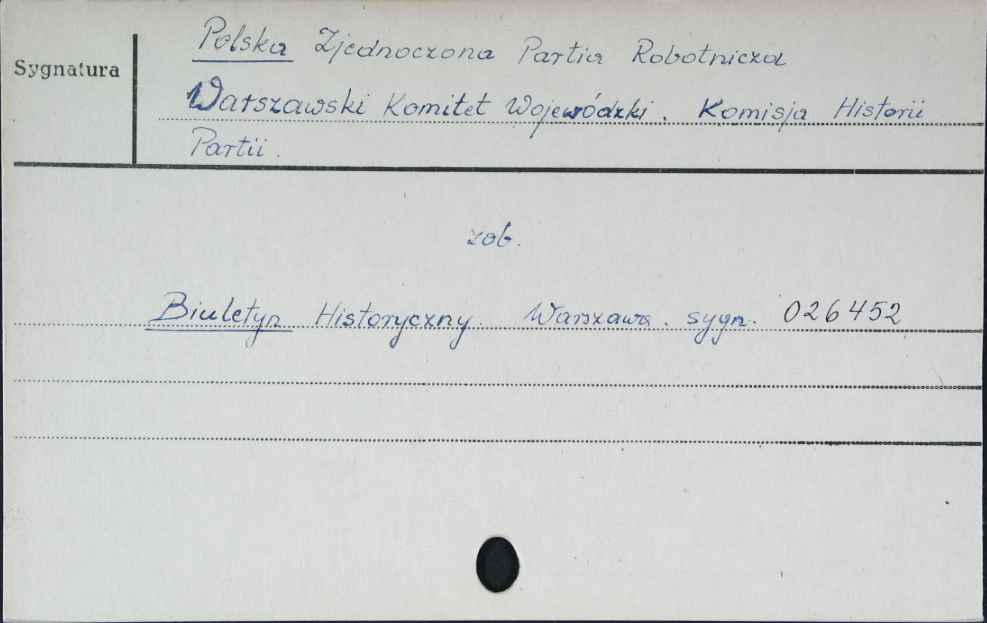 Sygnatura
Polska Zjednoczona Partia Robotnicza
Warszawski Komitet Wojewódzki. Komisja Historii
Partii.
zob.
Biuletyn Historyczny. Warszawa. sygn. 026452